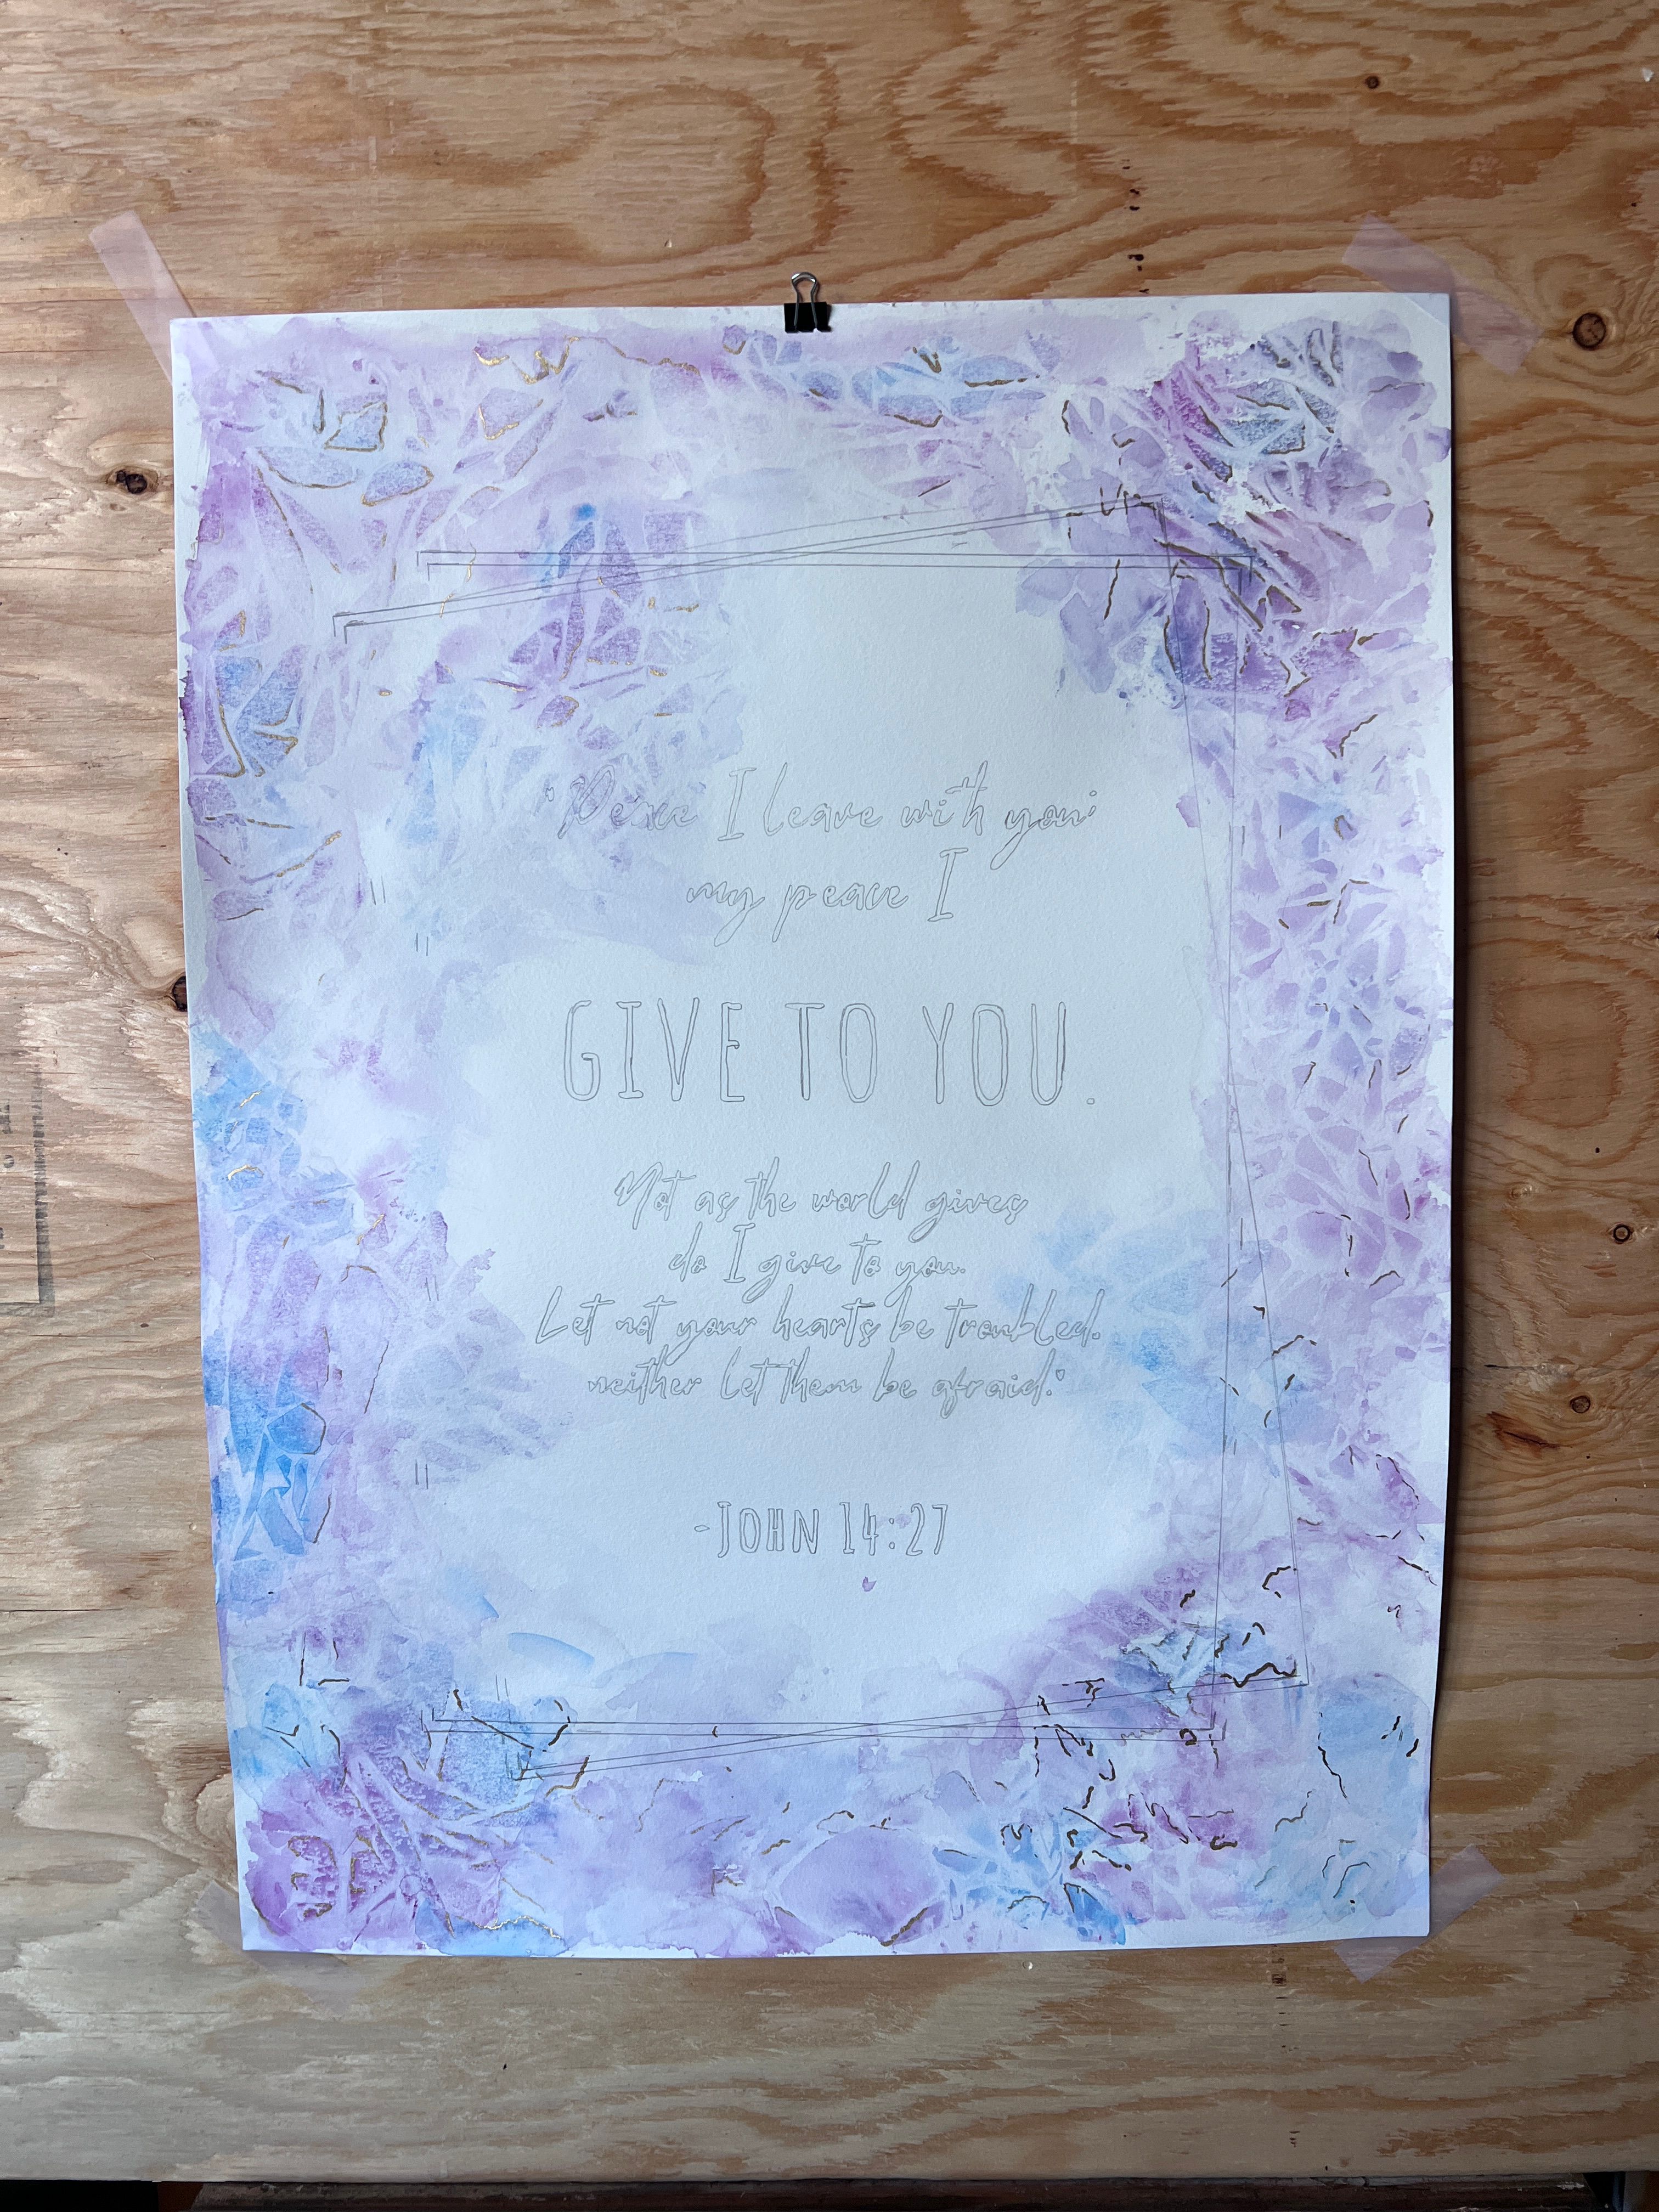 "Peace I leave with you;
my peace I
GIVE TO YOU.
Not as the world gives
do I give to you.
Let not your hearts be troubled,
neither let them be afraid."
-JOHN 14:27